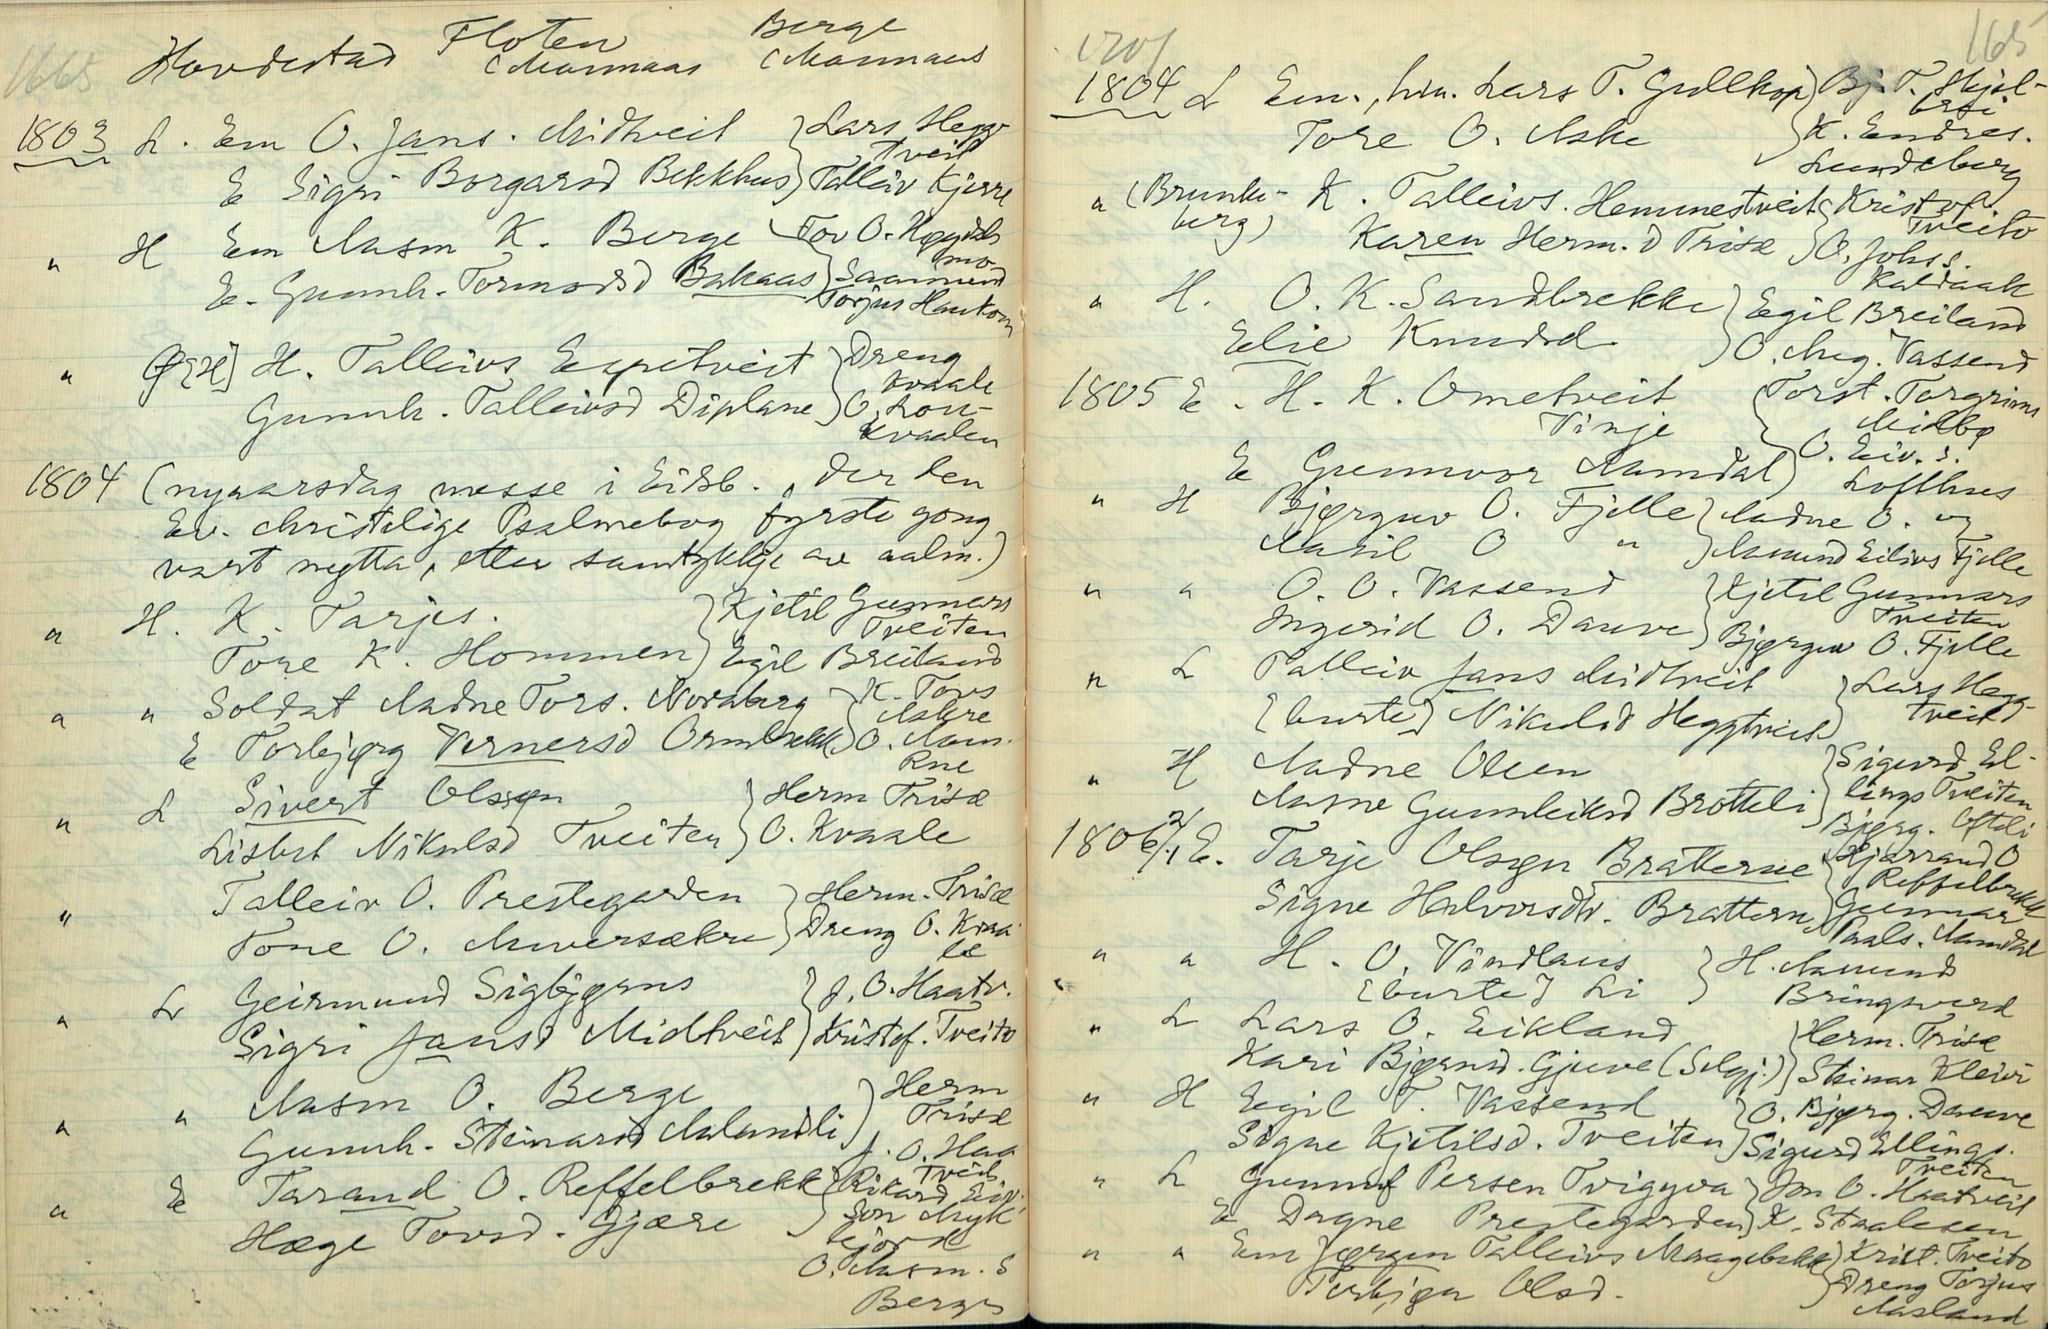 1665
Hovdestad Floten Berge
(Mormaas (Mormaas
1803 L. Em O. Jans. Midtveit } Lars Hegg-
tveit
E Sigri Borgarsd Bekkhus } Talleiv Kjerre
" H Em Aasm K. Berge } Tov O. Heggdals
mo
E. Gunnh. Tormodsd Bakaas } Saamund
Torjus Haukom
" Ø [H] H. Talleivs Espetveit } Dreng
Kvaale
Gunnh. Talleivsd Diplane } O. Lon-
kvaalen
1804 (nyaarsdag messe i Eidsb., der den
Ev. christelige Psalmebog fyrste gong
vart nytta, etter samtykkje av aalm.)
" H. K. Tarjes. } Kjetil Gunnars
Tveiten
Tore K. Hommen } Egil Breiland
" " Soldat Aadne Tors. Nordberg } K. Tovs
Aakre
E Torbjørg Vernersd Ormbrekk } O. Aam.
Rne
" L Sivert Olsøn } Herm Trisæ
Lisbet Nikulsd Tveiten } O. Kvaale
" Talleiv O. Prestegarden } Herm. Trisæ
Tone O. Mversækre } Dreng O. Kvaa-
le
" L Geirmund Sigbjørns } J. O. Haatv.
Sigri Jansd Midtveit } Kristof. Tveito
" " Aasm O. Berge } Herm
Trisæ
Gunnh. Steinarsd Aalandli } J. O. Haa
tveit
" E Tarand O. Reffelbrekk } Rikard Eiv.
son Myk-
Hæge Tovsd. Gjære
lejord
O. Aasm. S
Berge
1701 165
1804 L Em., hm. Lars T. Gullhop } Bj. T. Skjel-
brei
Tore O. Aske } K. Endres.
Lundeberg
" (Brunke- K. Talleivs. Hemmestveit } Kristof
Tveito
berg) Karen Herm.d Trisæ } O. Johs s.
Kaldaak
" H. O. K. Sandbrekke } Egil Breiland
Elie Knudsd } O. Aug. Vassend
1805 E. H. K. Ometveit } Torst. Torgrims
Vinje Midbø
E Gunnvor Aamdal } O. Eiv. s.
Lofthus
" H Bjørguv O. Fjelle } Aadne O. og
Aasil O " } Aamund Eilivs Fjelle
" " O. O. Vassend } Kjetil Gunnars
Tveiten
Ingerid O. Dauve } Bjørguv O. Fjelle
" L Talleiv Jans Midtveit } Lars Hegg-
tveit
[burte] Nikulsd Heggtveit
" H Aadne Olsen } Sigurd El-
lings Tveiten
Aasne Gunnleiksd Brotteli } Bjørg. Ofteli
1806 2/1 E. Tarje Olsøn Bratterne } Hjarrand O
Reffelbrekk
Signe Halvorsdtr. Brattern } Gunnar
Paals. Aamdal
" " H. O. Vindlaus } H. Aamund
[burte] Li } Bringsverd
" L Lars O. Eikland } Herm. Trisæ
Kari Bjørnsd. Gjuve (Selgj.) } Steinar Kleivi
" H Egil T. Vassend } O. Bjørg. Dauve
Signe Kjetilsd. Tveiten } Sigurd Ellings.
Tveiten
" L Gunnuf Persen Tvigyva } Jon O. Haatveit
E Dagne Prestegarden } K. Staalesen
" " Em Jørgen Talleivs Mragebekk } Krist. Tveito
Torbjør Olsd. } Dreng Torjus
Aasland